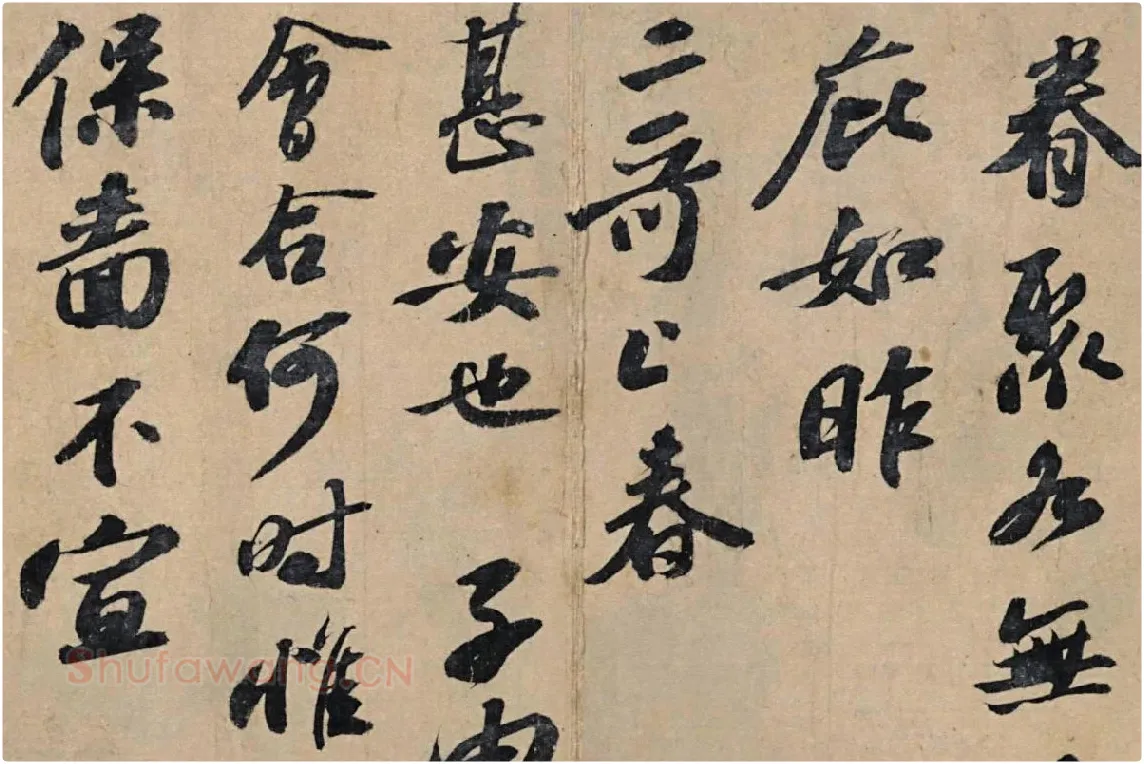 眷聚各無
庇如昨
二哥上春
甚安也 子由
會合何时惟
保嗇不宣
Shufawang.CN